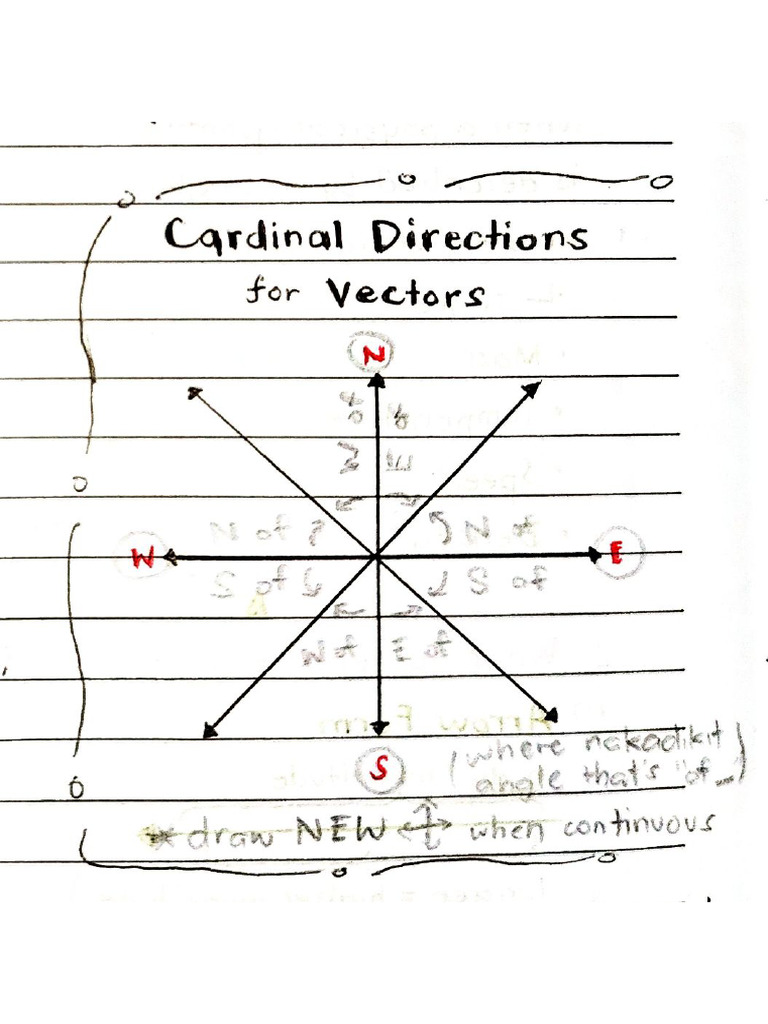 Cardinal Directions
for Vectors
N
W of E of
N of N of
W E
S of S of
W of E of
S
(where nakadikit
angle that's "of_")
* draw NEW when continuous